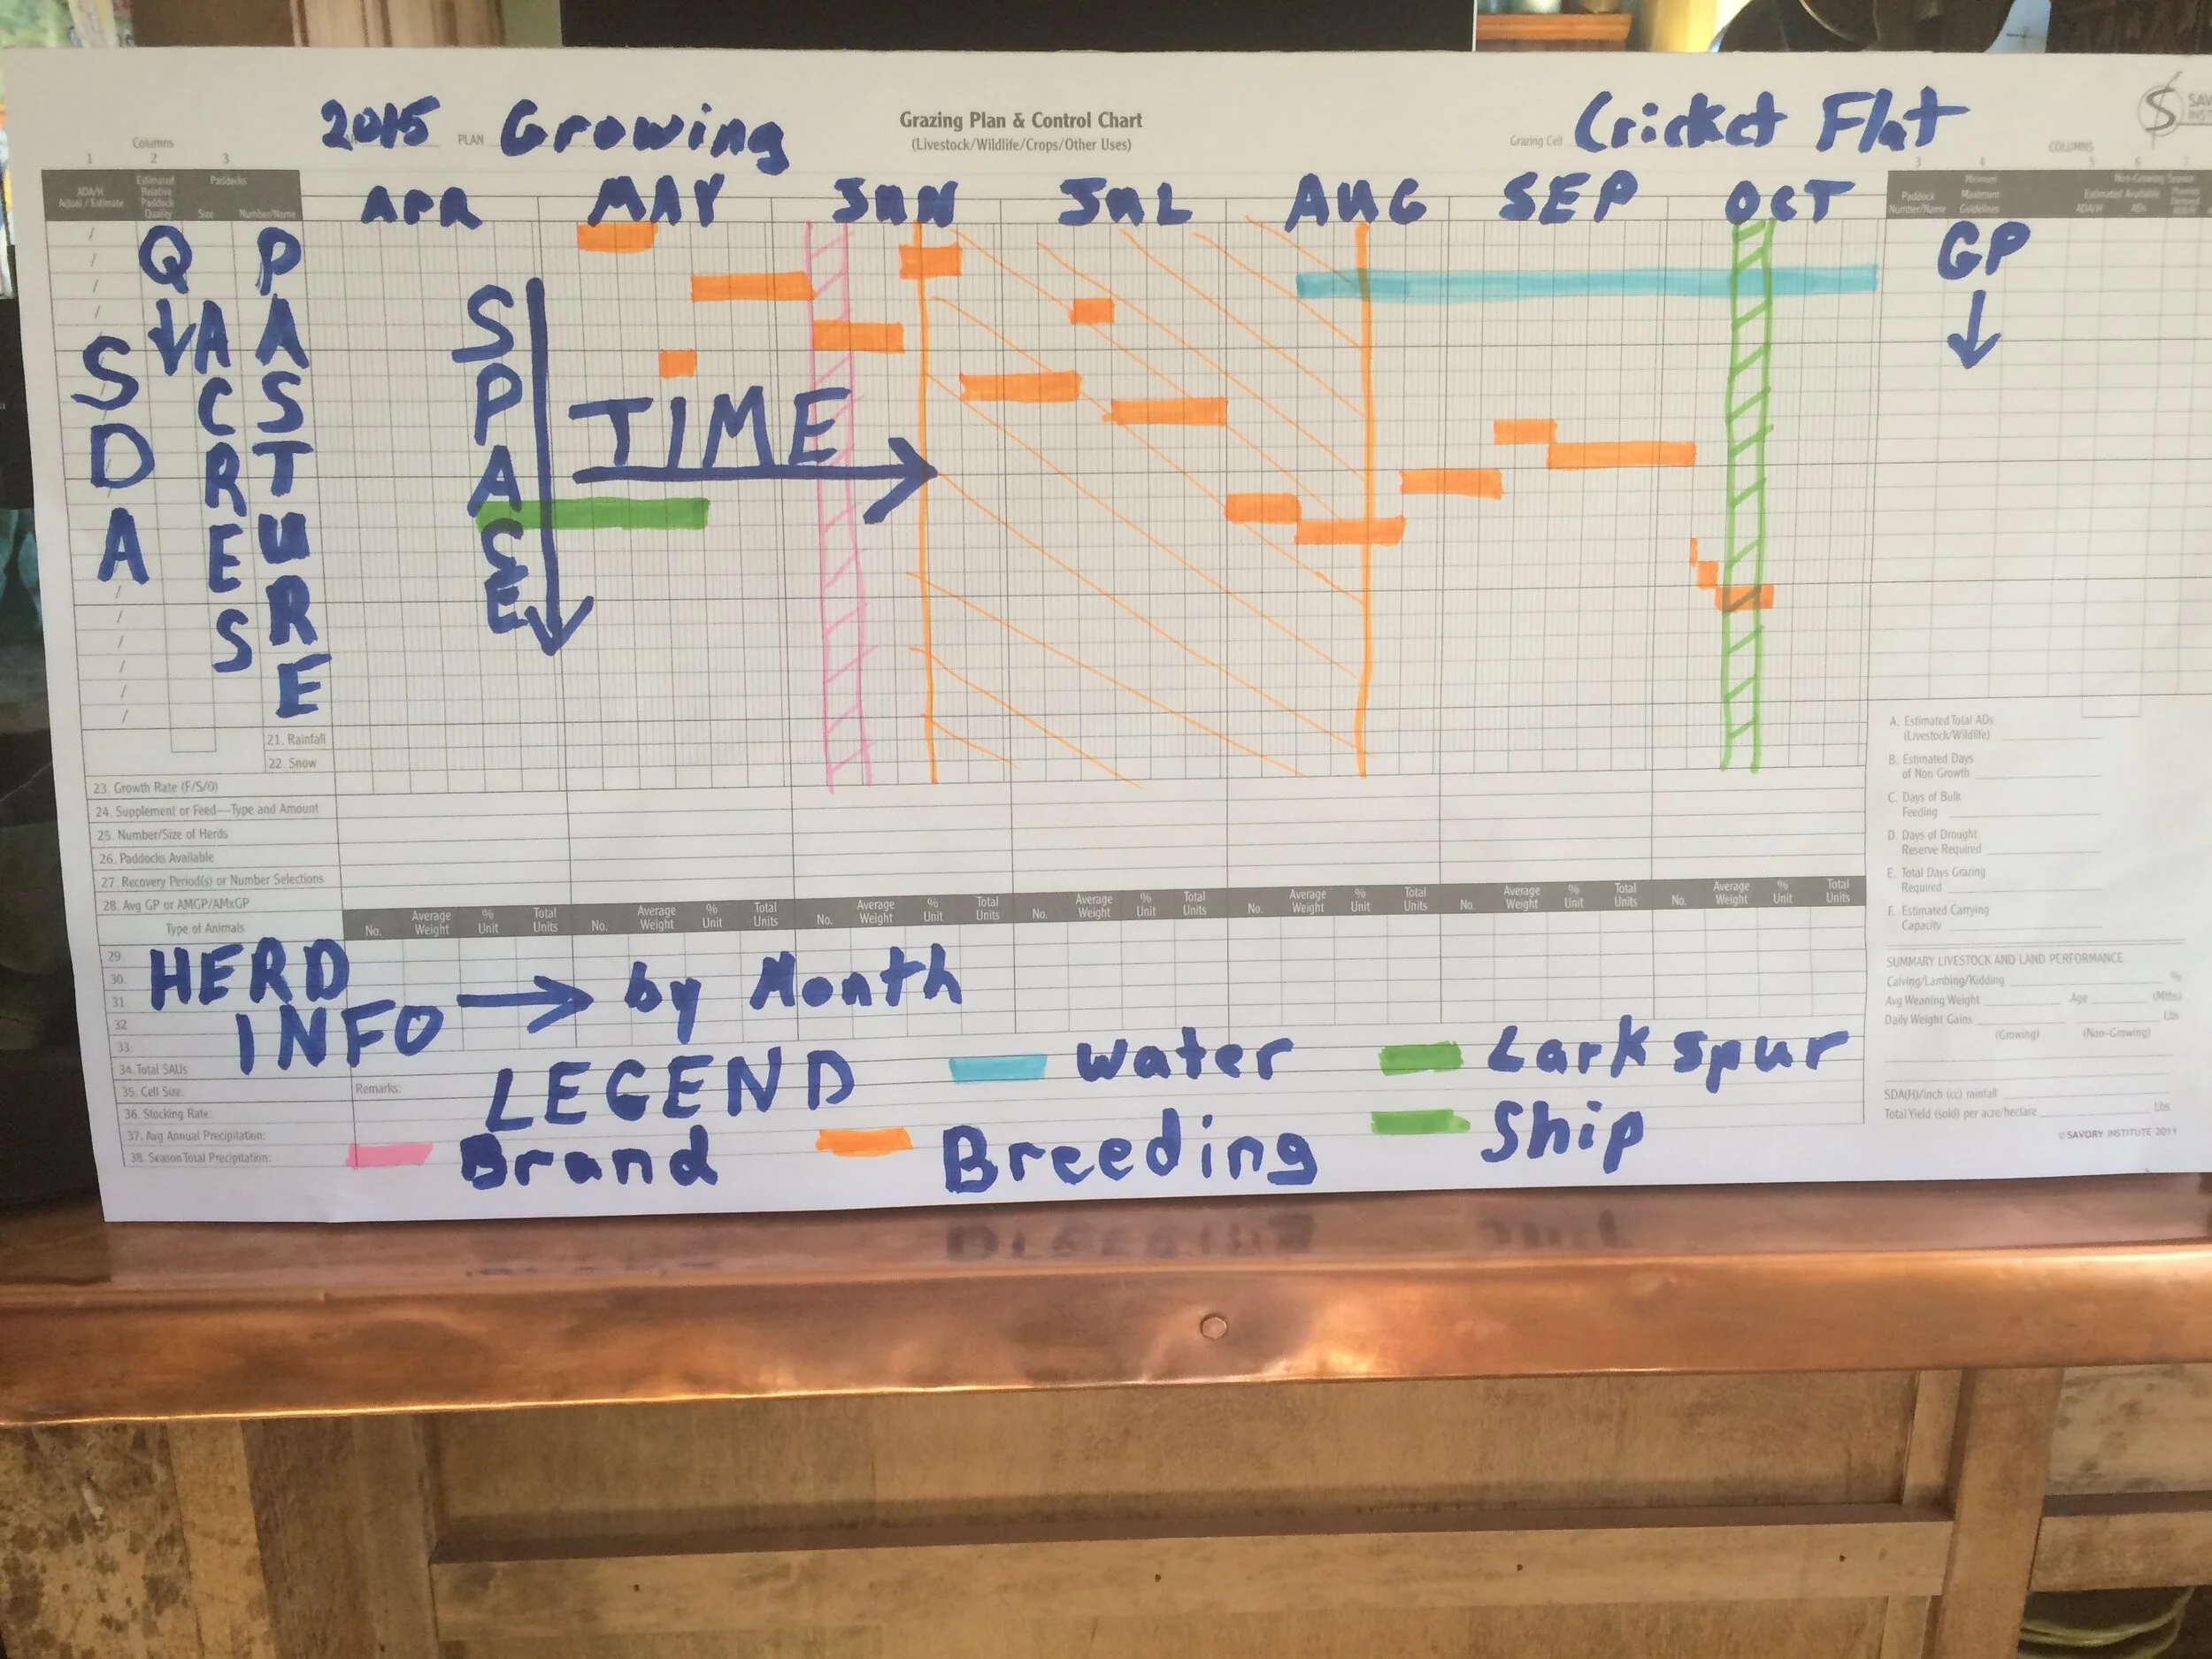 2015 PLAN Growing
Grazing Plan & Control Chart
(Livestock/Wildlife/Crops/Other Uses)
Grazing Cell Cricket Flat
SAV
INST
Columns
1 2 3
ADA/H
Actual / Estimate
Estimated
Relative
Paddock
Quality
Paddocks
Size Number/Name
APR MAY JUN JUL AUG SEP OCT
COLUMNS
3 4 5 6 7
Paddock
Number/Name
Minimum
Maximum
Guidelines
Non-Growing Season
Estimated Available
ADA/H ADs
Q
SDA
ACRES
PASTURE
SPACE
TIME
GP
21. Rainfall
22. Snow
23. Growth Rate (F/S/0)
24. Supplement or Feed—Type and Amount
25. Number/Size of Herds
26. Paddocks Available
27. Recovery Period(s) or Number Selections
28. Avg GP or AMGP/AMxGP
Type of Animals
No. Average Weight % Unit Total Units No. Average Weight % Unit Total Units No. Average Weight % Unit Total Units No. Average Weight % Unit Total Units No. Average Weight % Unit Total Units No. Average Weight % Unit Total Units No. Average Weight % Unit Total Units
29.
30.
31
32
33.
HERD
INFO by Month
34. Total SAUs
35. Cell Size:
36. Stocking Rate:
37. Avg Annual Precipitation:
38. Season Total Precipitation:
Remarks:
LEGEND Water Larkspur
Brand Breeding Ship
A. Estimated Total ADs
(Livestock/Wildlife)
B. Estimated Days
of Non Growth
C. Days of Bulk
Feeding
D. Days of Drought
Reserve Required
E. Total Days Grazing
Required
F. Estimated Carrying
Capacity
SUMMARY LIVESTOCK AND LAND PERFORMANCE
Calving/Lambing/Kidding %
Avg Weaning Weight Age (Mths)
Daily Weight Gains Lbs
(Growing) (Non-Growing)
SDA(H)/inch (cc) rainfall
Total Yield (sold) per acre/hectare Lbs
© SAVORY INSTITUTE 2011